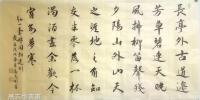 長亭外古道邊
芳草碧連天晚
風拂柳笛聲殘
夕陽山外山天
之涯地之角知
交半零落一
濁酒盡余歡今
宵别夢寒